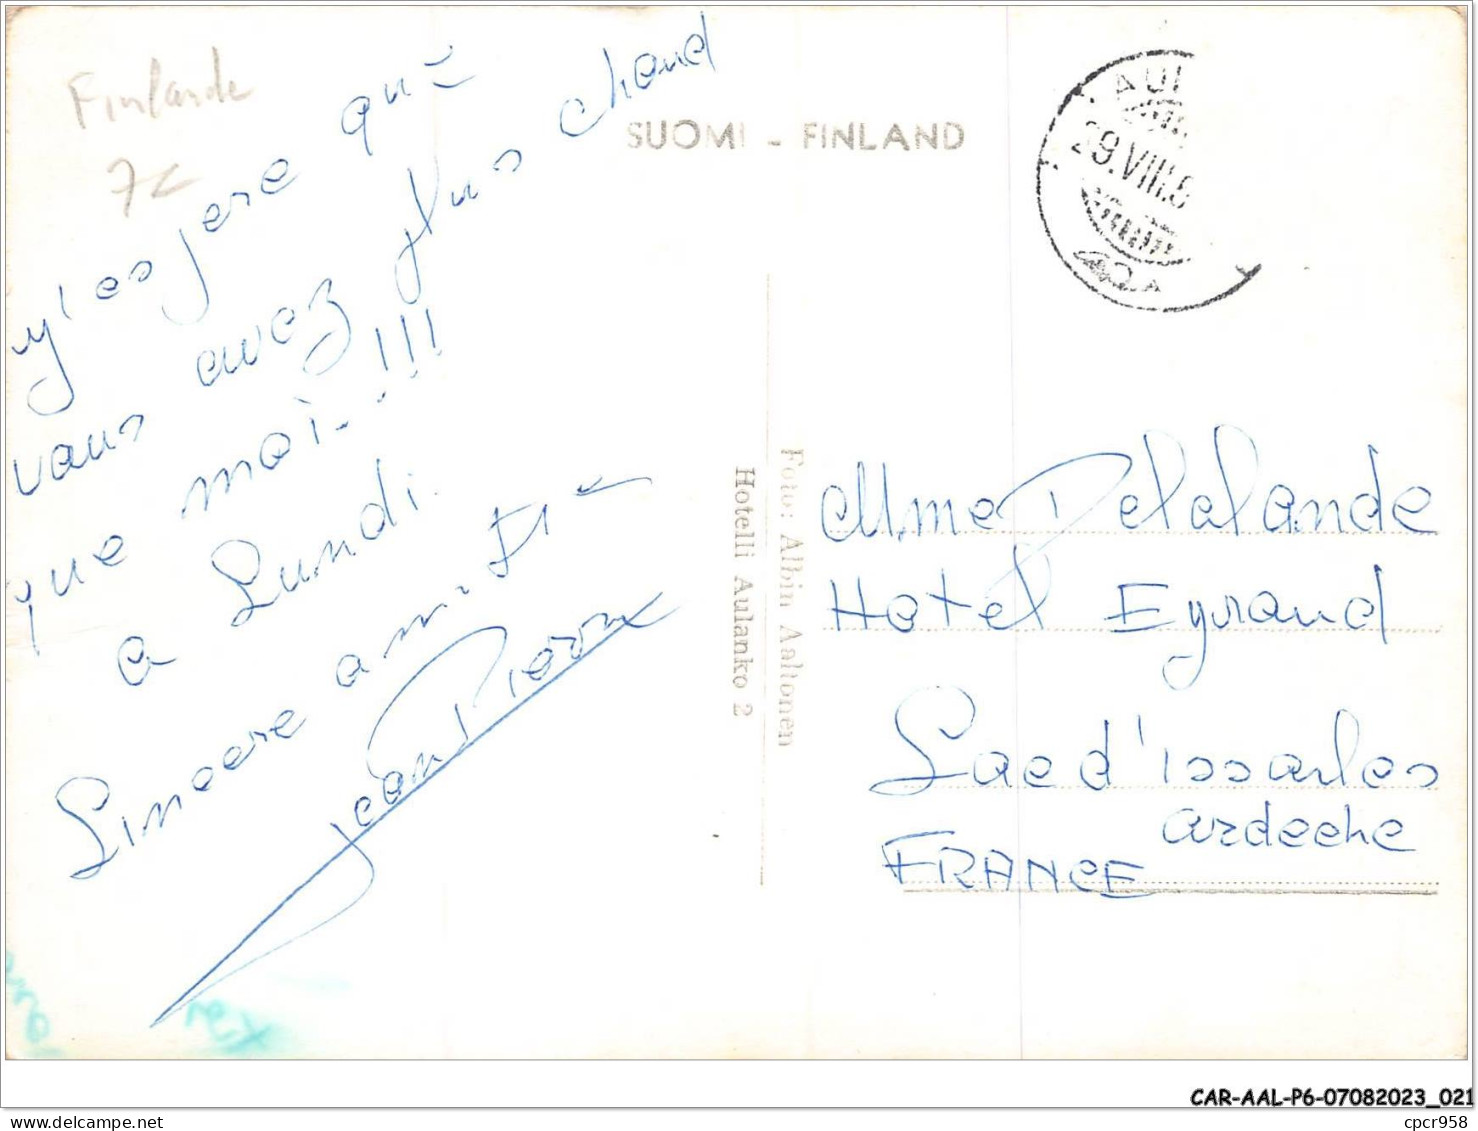 Finlande
SUOMI - FINLAND
29.VIII.5
y'espère que
vous avez plus chaud
que moi..!!!
a Lundi.
Sincère amitié
Jean
Foto: Albin Aaltonen
Hotelli Aulanko 2
Mme Delalande
Hotel Eyraud
Lac d'issarles
ardeche
FRANCE
CAR-AAL-P6-07082023_021
cpcr958